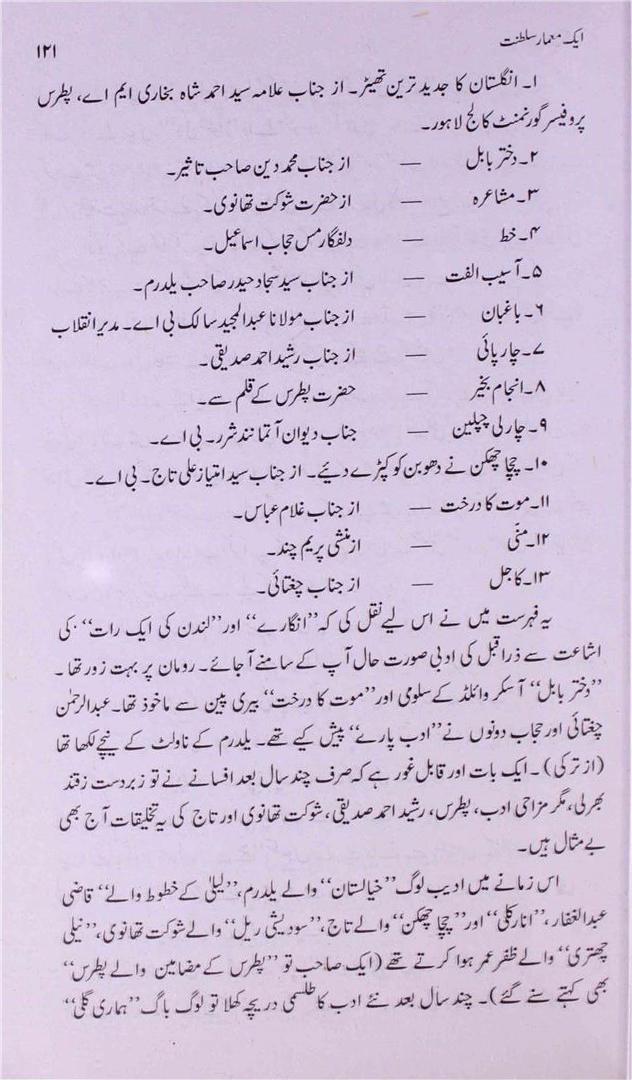 ایک معمار سلطنت
۱۲۱
۱۔ انگلستان کا جدید ترین تھیٹر۔ از جناب علامہ سید احمد شاہ بخاری ایم اے، پطرس
پروفیسر گورنمنٹ کالج لاہور۔
۲۔ دختر بابل — از جناب محمد دین صاحب تاثیر۔
۳۔ مشاعرہ — از حضرت شوکت تھانوی۔
۴۔ خط — دلفگار مس حجاب اسماعیل۔
۵۔ آسیب الفت — از جناب سید سجاد حیدر صاحب یلدرم۔
۶۔ باغبان — از جناب مولانا عبدالمجید سالک بی اے۔ مدیر انقلاب
۷۔ چارپائی — از جناب رشید احمد صدیقی۔
۸۔ انجام بخیر — حضرت پطرس کے قلم سے۔
۹۔ چارلی چپلین — جناب دیوان آتما نند شرر۔ بی اے۔
۱۰۔ چچا چھکن نے دھوبن کو کپڑے دئیے۔ از جناب سید امتیاز علی تاج۔ بی اے۔
۱۱۔ موت کا درخت — از جناب غلام عباس۔
۱۲۔ منّی — از منشی پریم چند۔
۱۳۔ کاجل — از جناب چغتائی۔
یہ فہرست میں نے اس لیے نقل کی کہ ”انگارے“ اور ”لندن کی ایک رات“ کی
اشاعت سے ذرا قبل کی ادبی صورت حال آپ کے سامنے آ جائے۔ رومان پر بہت زور تھا۔
”دختر بابل“ آسکر وائلڈ کے سلومی اور ”موت کا درخت“ بیری پین سے ماخوذ تھا۔ عبدالرحمٰن
چغتائی اور حجاب دونوں نے ”ادب پارے“ پیش کیے تھے۔ یلدرم کے ناولٹ کے نیچے لکھا تھا
(از ترکی)۔ ایک بات اور قابل غور ہے کہ صرف چند سال بعد افسانے نے تو زبردست زقند
بھر لی، مگر مزاحی ادب، پطرس، رشید احمد صدیقی، شوکت تھانوی اور تاج کی یہ تخلیقات آج بھی
بے مثال ہیں۔
اس زمانے میں ادیب لوگ ”خیالستان“ والے یلدرم، ”لیلیٰ کے خطوط والے“ قاضی
عبدالغفار، ”انارکلی“ اور ”چچا چھکن“ والے تاج، ”سودیشی ریل“ والے شوکت تھانوی، ”نیلی
چھتری“ والے ظفر عمر ہوا کرتے تھے (ایک صاحب تو ”پطرس کے مضامین والے پطرس“
بھی کہتے سنے گئے)۔ چند سال بعد نئے ادب کا طلسمی دریچہ کھلا تو لوگ باگ ”ہماری گلی“